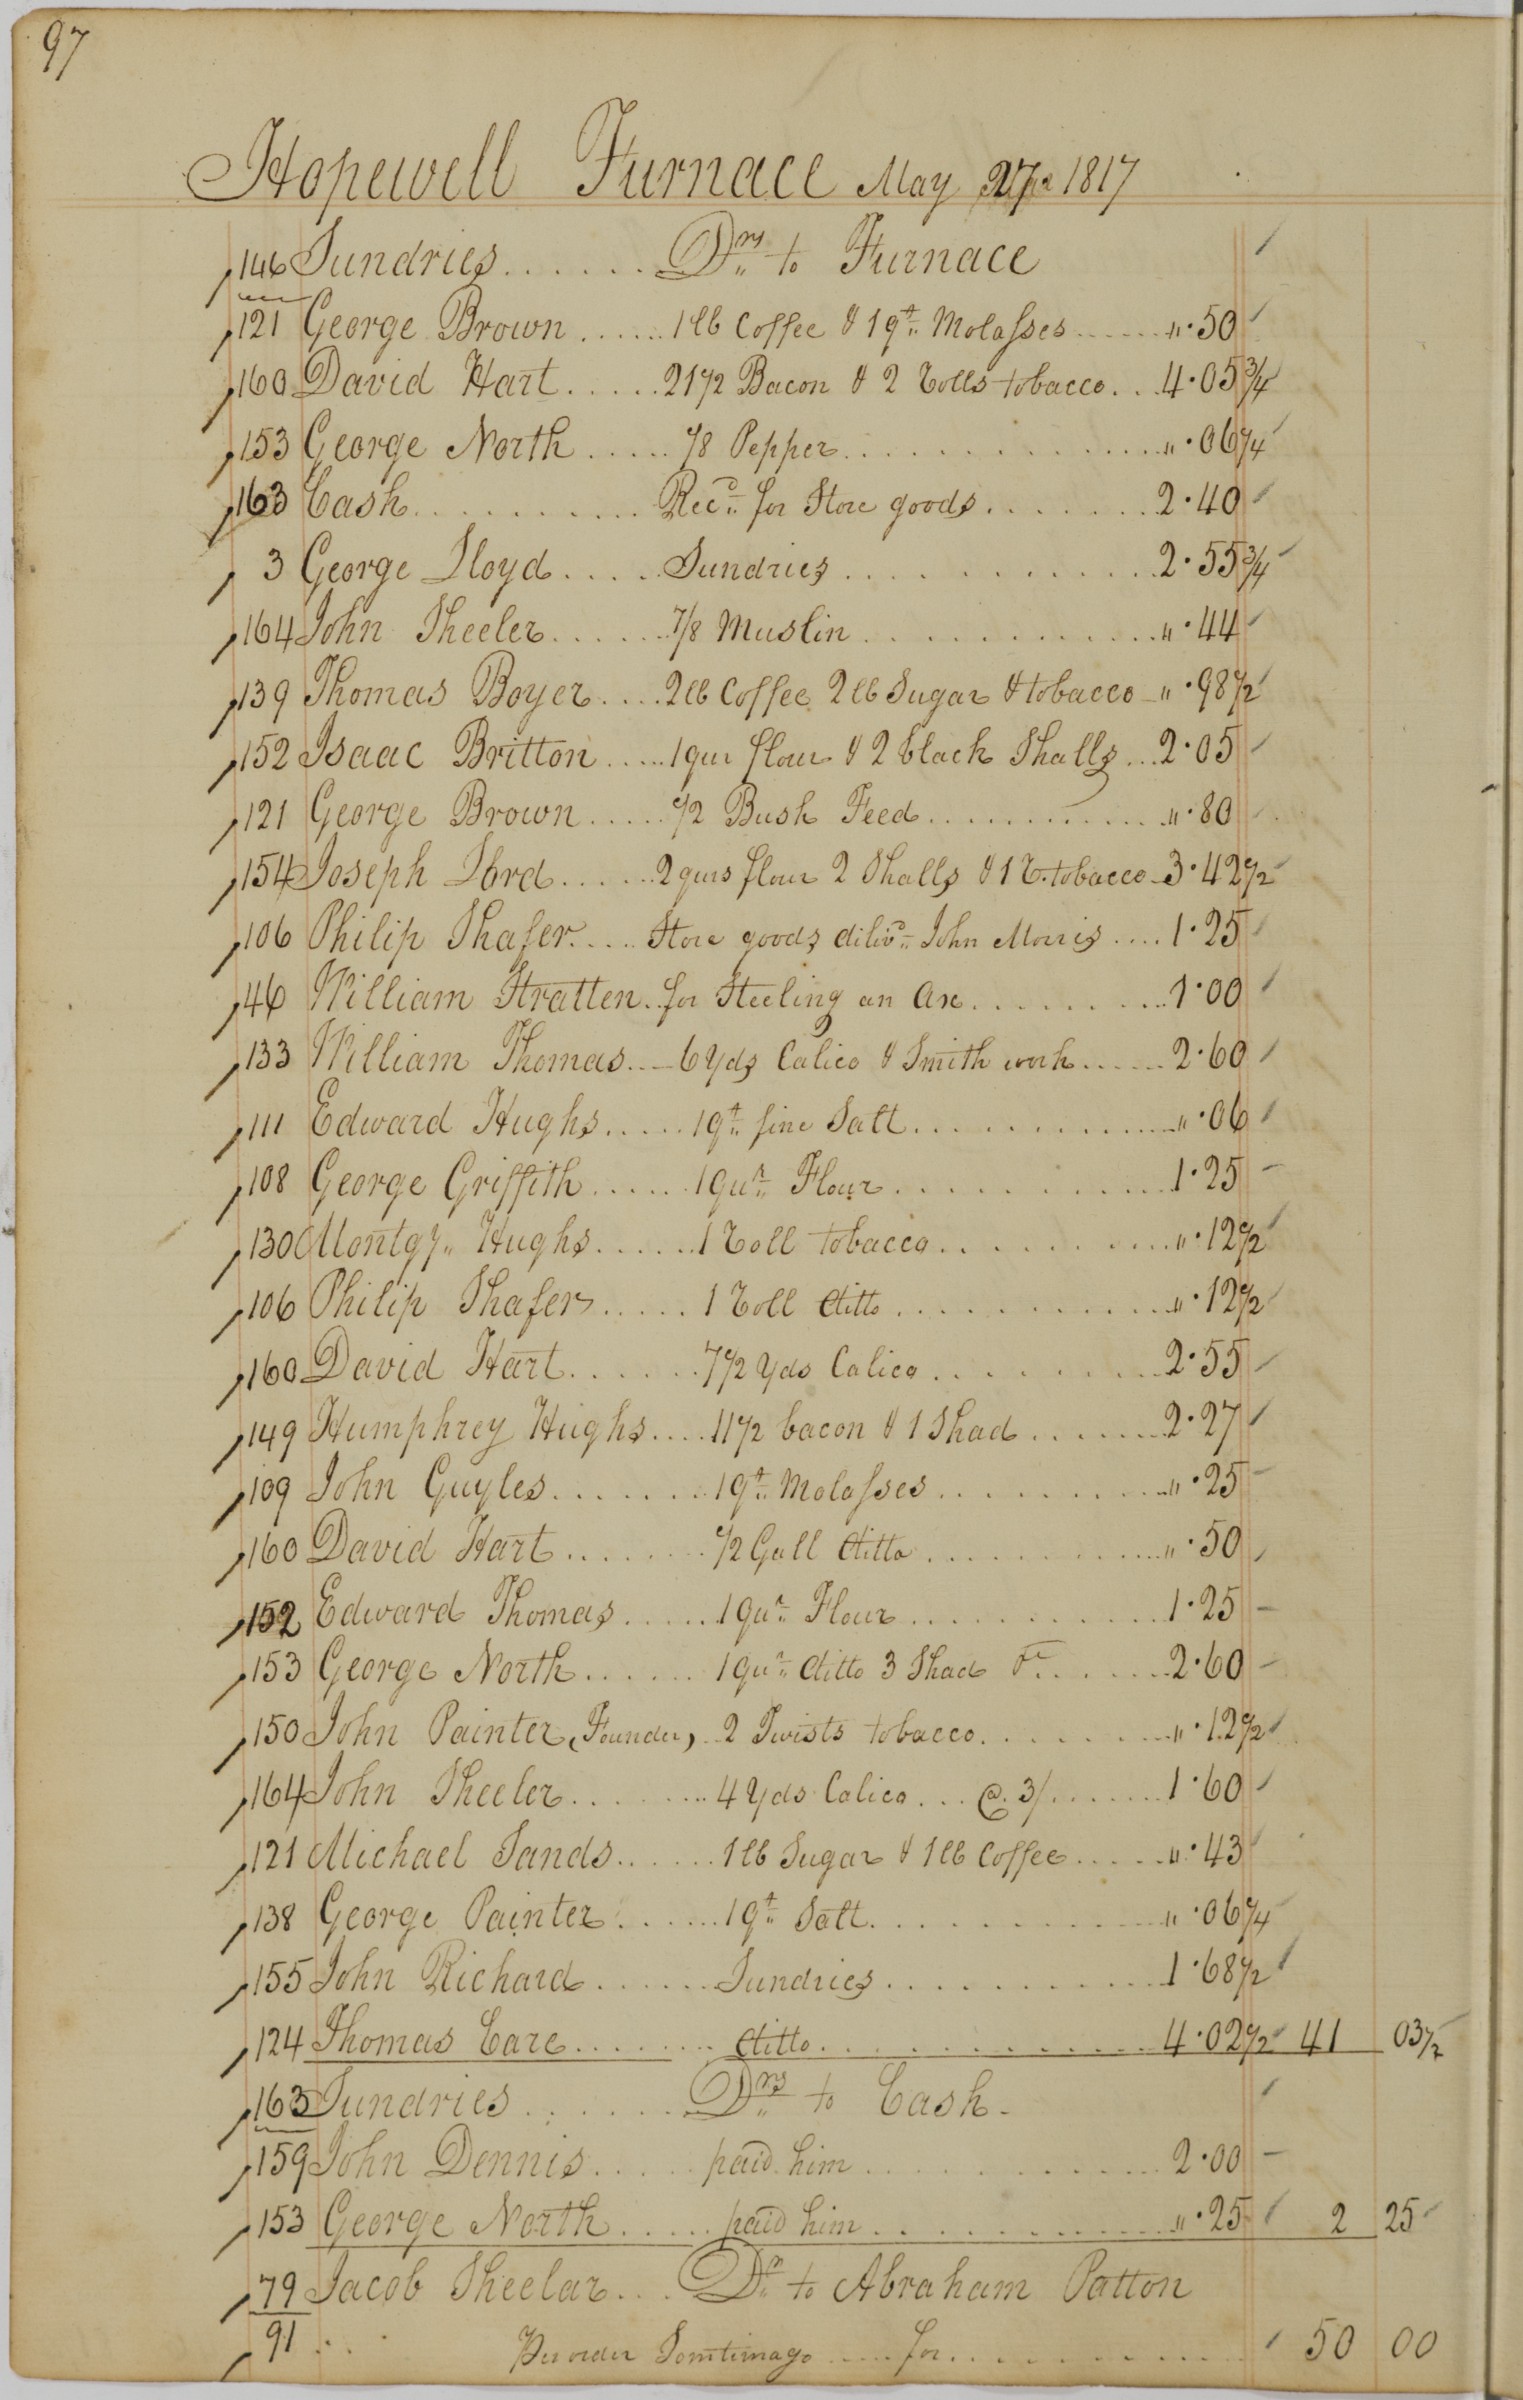 97
Hopewell Furnace May 27 1817
146 Sundries...... Drs to Furnace
121 George Brown...... 1 lb Coffee & 1 qt Molasses...... ".50
160 David Hart..... 21 1/2 Bacon & 2 Rolls tobacco... 4.05 3/4
153 George North..... 1/8 Pepper............... ".06 1/4
163 Cash........... Recd for Store goods........ 2.40
3 George Lloyd..... Sundries............. 2.55 3/4
164 John Sheeler...... 7/8 Muslin............. ".44
139 Thomas Boyer.... 2 lb Coffee 2 lb Sugar & tobacco ".98 1/2
152 Isaac Britton..... 1 qur flour & 2 black Shalls... 2.05
121 George Brown..... 1/2 Bush Feed............ ".80
154 Joseph Lord...... 2 qurs flour 2 Shalls & 1 R. tobacco 3.42 1/2
106 Philip Shafer.... Store goods diliv'd John Morris.... 1.25
46 William Stratten.. for Steeling an Ax......... 1.00
133 William Thomas... 6 Yds Calico & Smith work...... 2.60
111 Edward Hughs..... 1 qt fine Salt............. ".06
108 George Griffith...... 1 qur Flour............ 1.25
130 Montgy Hughs...... 1 Roll tobacco........... ".12 1/2
106 Philip Shafer..... 1 Roll ditto............. ".12 1/2
160 David Hart...... 7 1/2 Yds Calico.......... 2.55
149 Humphrey Hughs.... 11 1/2 bacon & 1 Shad....... 2.27
109 John Guyles........ 1 qt Molasses.......... ".25
160 David Hart........ 1/2 Gall ditto............ ".50
152 Edward Thomas..... 1 qur Flour............ 1.25
153 George North...... 1 qur ditto 3 Shad &c...... 2.60
150 John Painter (Founder) .. 2 Twists tobacco......... ".12 1/2
164 John Sheeler........ 4 Yds Calico... @ 3/....... 1.60
121 Michael Sands...... 1 lb Sugar & 1 lb Coffee..... ".43
138 George Painter...... 1 qt Salt............. ".06 1/4
155 John Richard...... Sundries............ 1.68 1/2
124 Thomas Care........ ditto............. 4.02 1/2 41 03 1/2
163 Sundries....... Drs to Cash.
159 John Dennis..... paid him............ 2.00
153 George North..... paid him............ ".25 2 25
79 Jacob Sheelar... Dr to Abraham Patton
91 ... Per order Somtimago ..... for........... 50 00